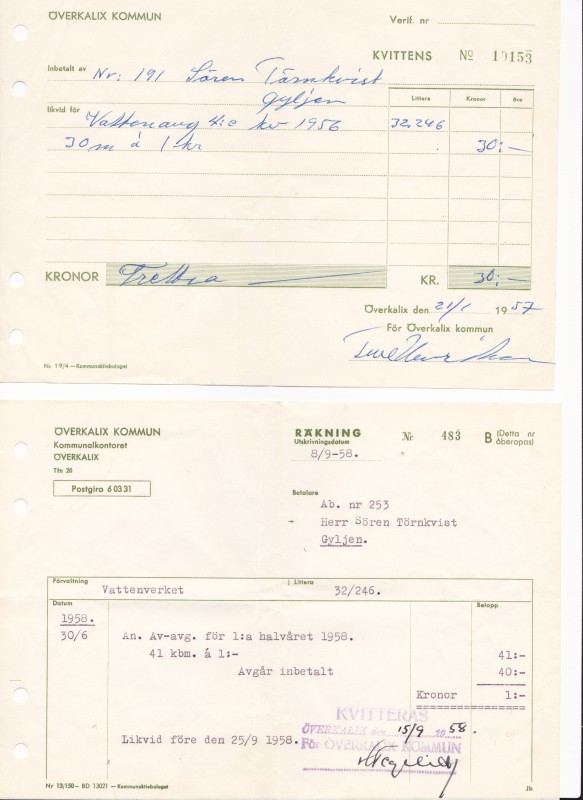 ÖVERKALIX KOMMUN
Verif. nr
KVITTENS No 19153
Inbetalt av Nr: 191 Sören Törnkvist
Gyljen
Littera Kronor öre
likvid för
Vattenavg 4:e kv 1956 32.246
30 m á 1 kr 30:-
KRONOR Trettio KR. 30:-
Överkalix den 21/1 1957
För Överkalix kommun
Nr 19/4 — Kommunaktiebolaget
ÖVERKALIX KOMMUN
Kommunalkontoret
ÖVERKALIX
Tfn 20
Postgiro 6 03 31
RÄKNING Nr 483 B (Detta nr åberopas)
Utskrivningsdatum
8/9-58.
Betalare
Ab. nr 253
Herr Sören Törnkvist
Gyljen.
Förvaltning Vattenverket Littera 32/246.
Datum Belopp
1958.
30/6 An. Av-avg. för 1:a halvåret 1958.
41 kbm. á 1:- 41:-
Avgår inbetalt 40:-
Kronor 1:-
KVITTERAS
ÖVERKALIX den 15/9 1958.
För ÖVERKALIX KOMMUN
Likvid före den 25/9 1958.
Nr 13/150 — BD 13021 — Kommunaktiebolaget Jb